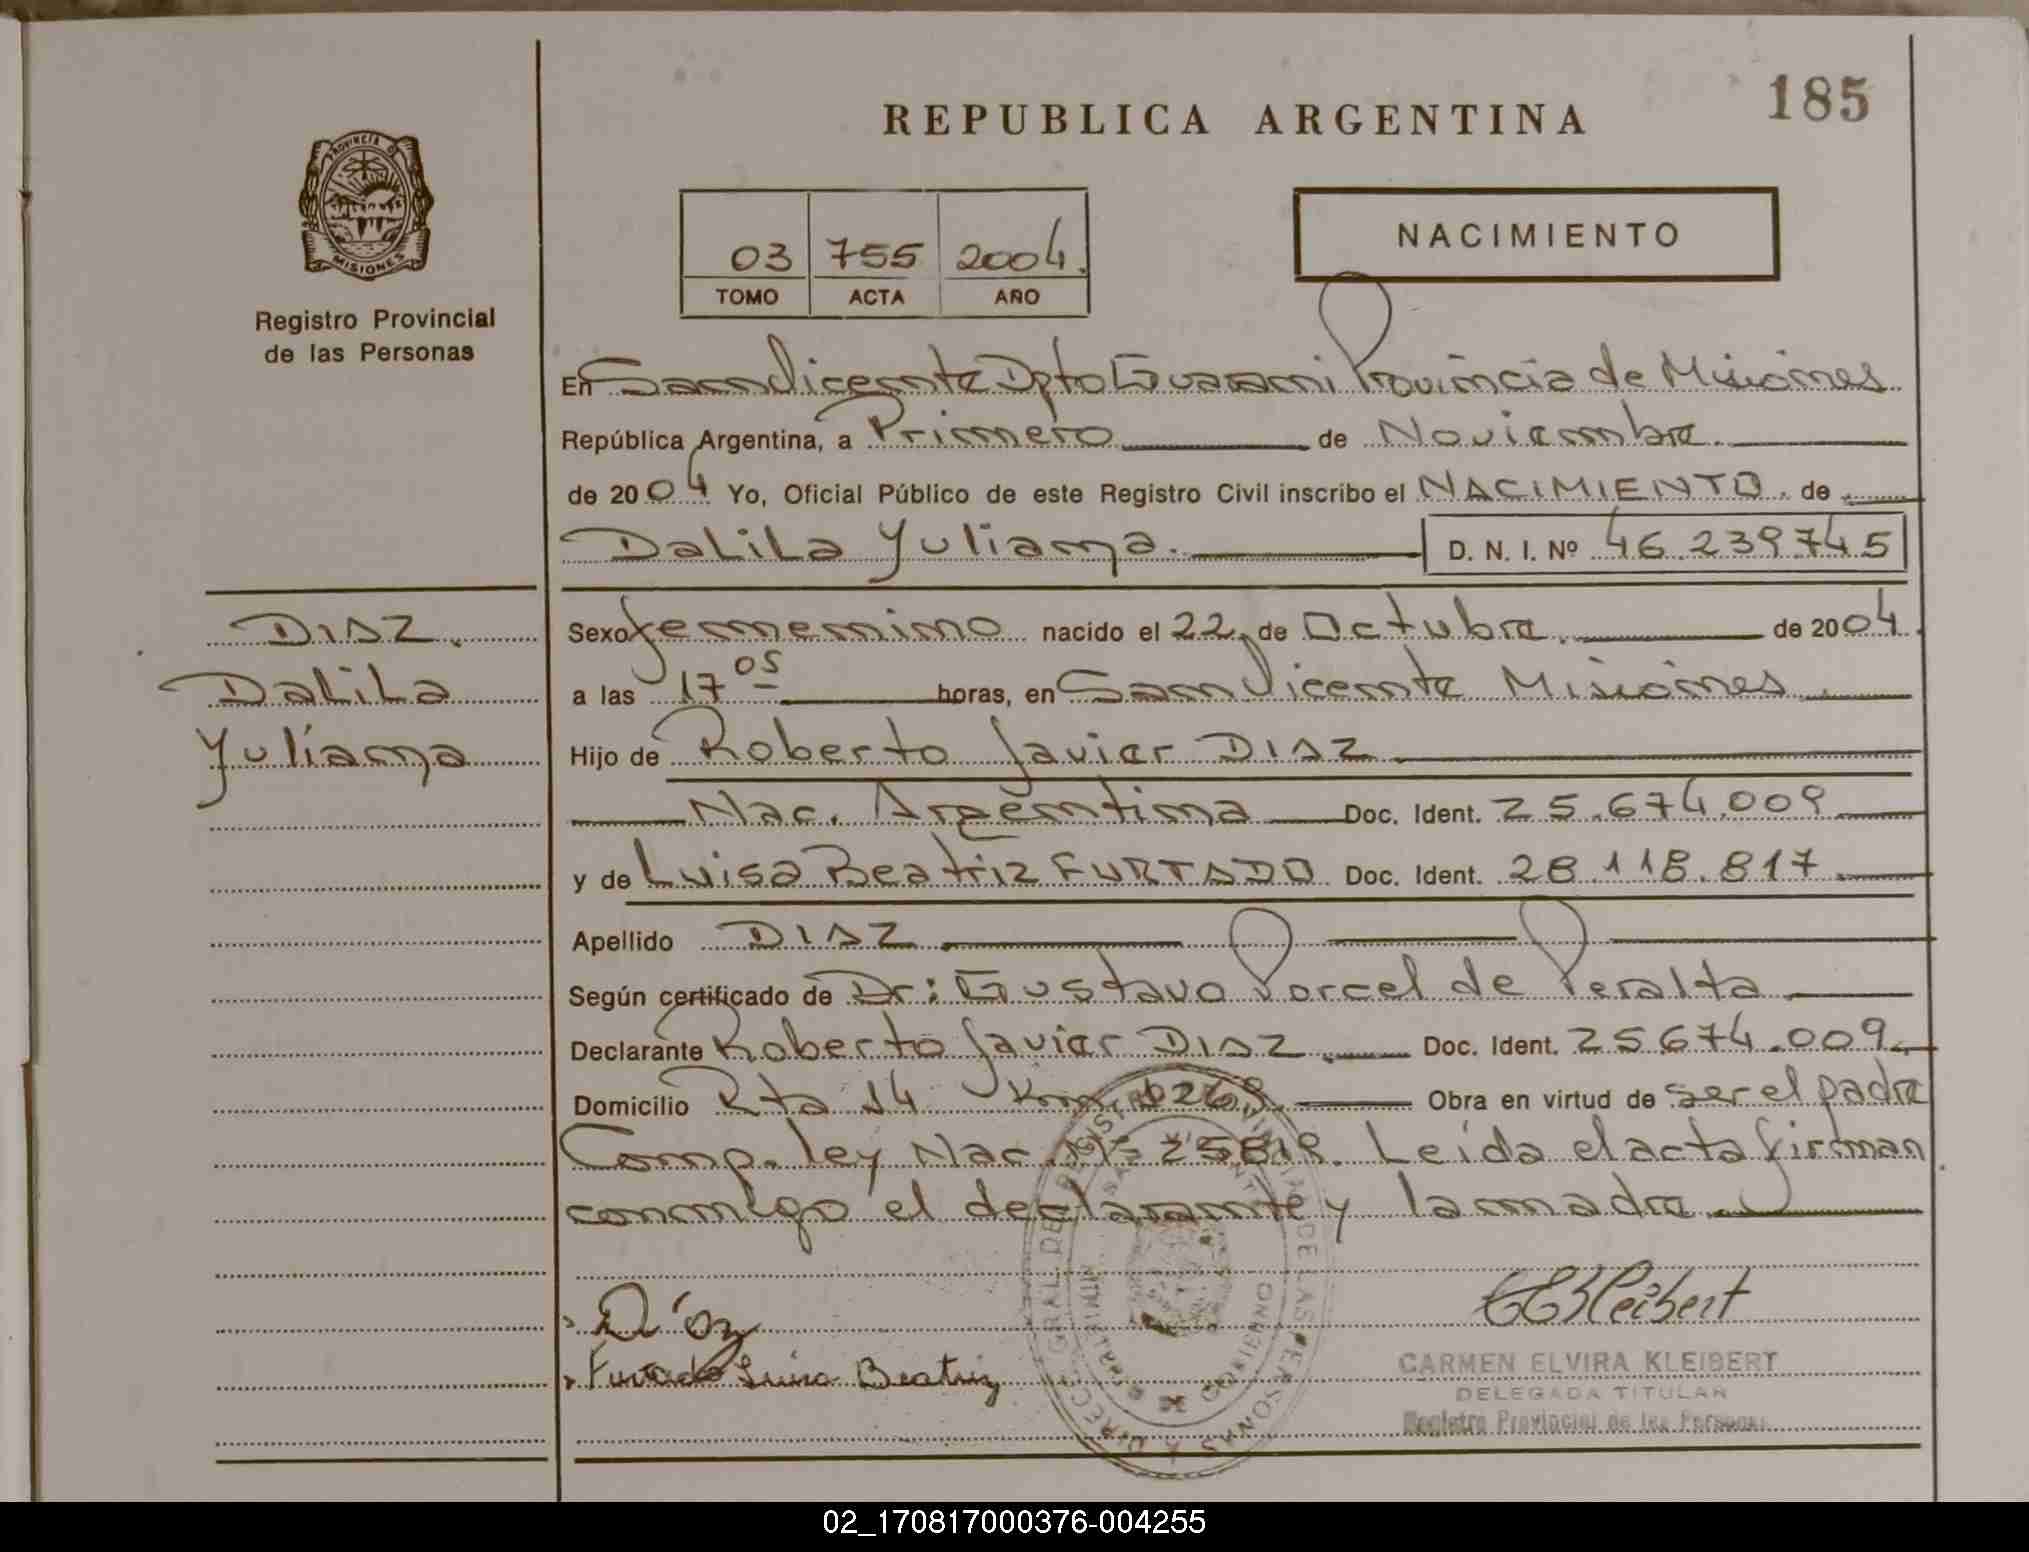 185
REPUBLICA ARGENTINA
PROVINCIA DE
MISIONES
Registro Provincial
de las Personas
NACIMIENTO
03 755 2004.
TOMO ACTA AÑO
En San Vicente Dpto Guarani Provincia de Misiones
República Argentina, a Primero de Noviembre.
de 2004 Yo, Oficial Público de este Registro Civil inscribo el NACIMIENTO. de
Dalila Yuliana. D. N. I. Nº 46.239.745
DIAZ.
Dalila
Yuliana
Sexo femenino nacido el 22 de Octubre. de 2004.
a las 17 05 horas, en San Vicente Misiones.
Hijo de Roberto Javier DIAZ
Nac. Argentina Doc. Ident. 25.674.009
y de Luisa Beatriz FURTADO Doc. Ident. 28.118.817
Apellido DIAZ
Según certificado de Dr: Gustavo Porcel de Peralta
Declarante Roberto Javier DIAZ. Doc. Ident. 25674.009.
Domicilio Rta 14 Obra en virtud de ser el padre
Comp. ley Nac. Nº 25818. Leída el acta firman
conmigo el declarante y la madre.
Díaz
Furtado Luisa Beatriz
CEKleibert
CARMEN ELVIRA KLEIBERT
DELEGADA TITULAR
Registro Provincial de las Personas
GRAL. DE REGISTRO DE LAS PERSONAS
GOBIERNO
02_170817000376-004255